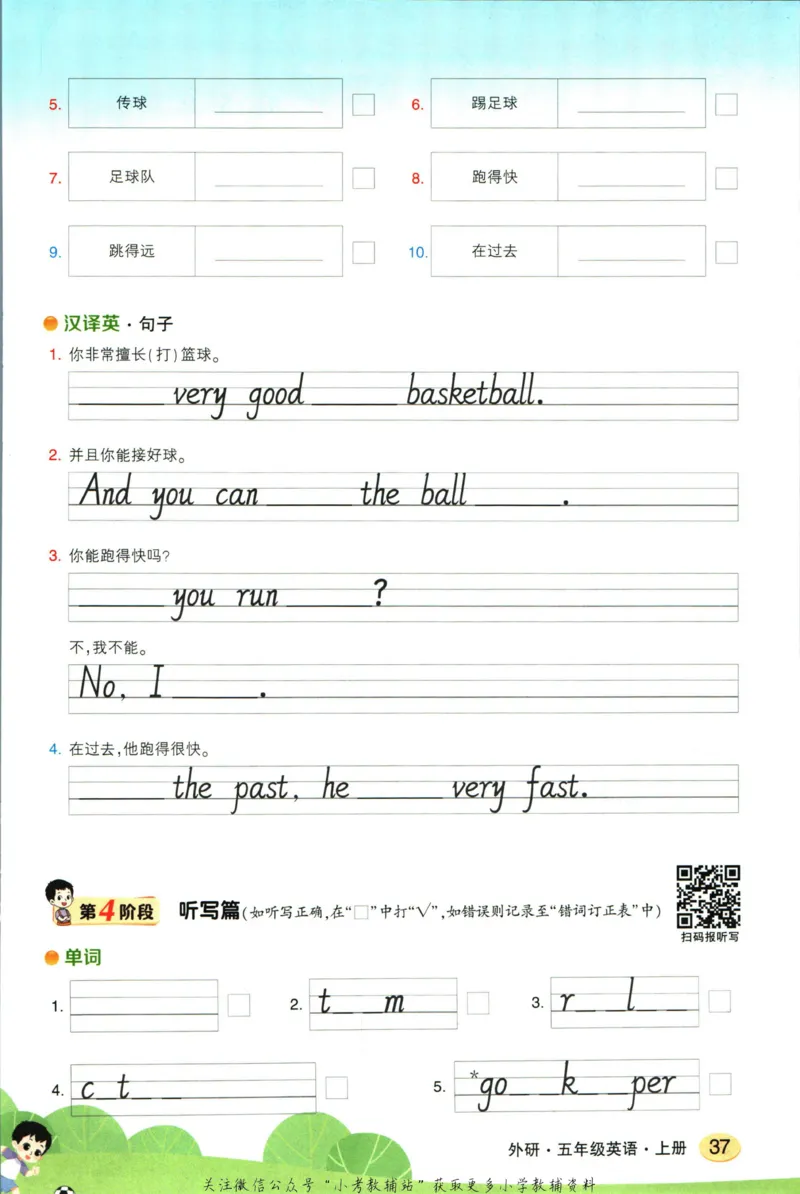 5. 传球 ________ □ 6. 踢足球 ________ □
7. 足球队 ________ □ 8. 跑得快 ________ □
9. 跳得远 ________ □ 10. 在过去 ________ □
汉译英·句子
1. 你非常擅长(打)篮球。
______ very good ______ basketball.
2. 并且你能接好球。
And you can ______ the ball ______.
3. 你能跑得快吗?
______ you run ______?
不,我不能。
No, I ______.
4. 在过去,他跑得很快。
______ the past, he ______ very fast.
第4阶段 听写篇(如听写正确,在“□”中打“√”,如错误则记录至“错词订正表”中)
扫码报听写
单词
1. □ 2. t__ __m □ 3. r__ __l__ __ □
4. c__t__ __ □ 5. *go__ __k__ __per □
外研·五年级英语·上册 37
关注微信公众号“小考教辅站”获取更多小学教辅资料